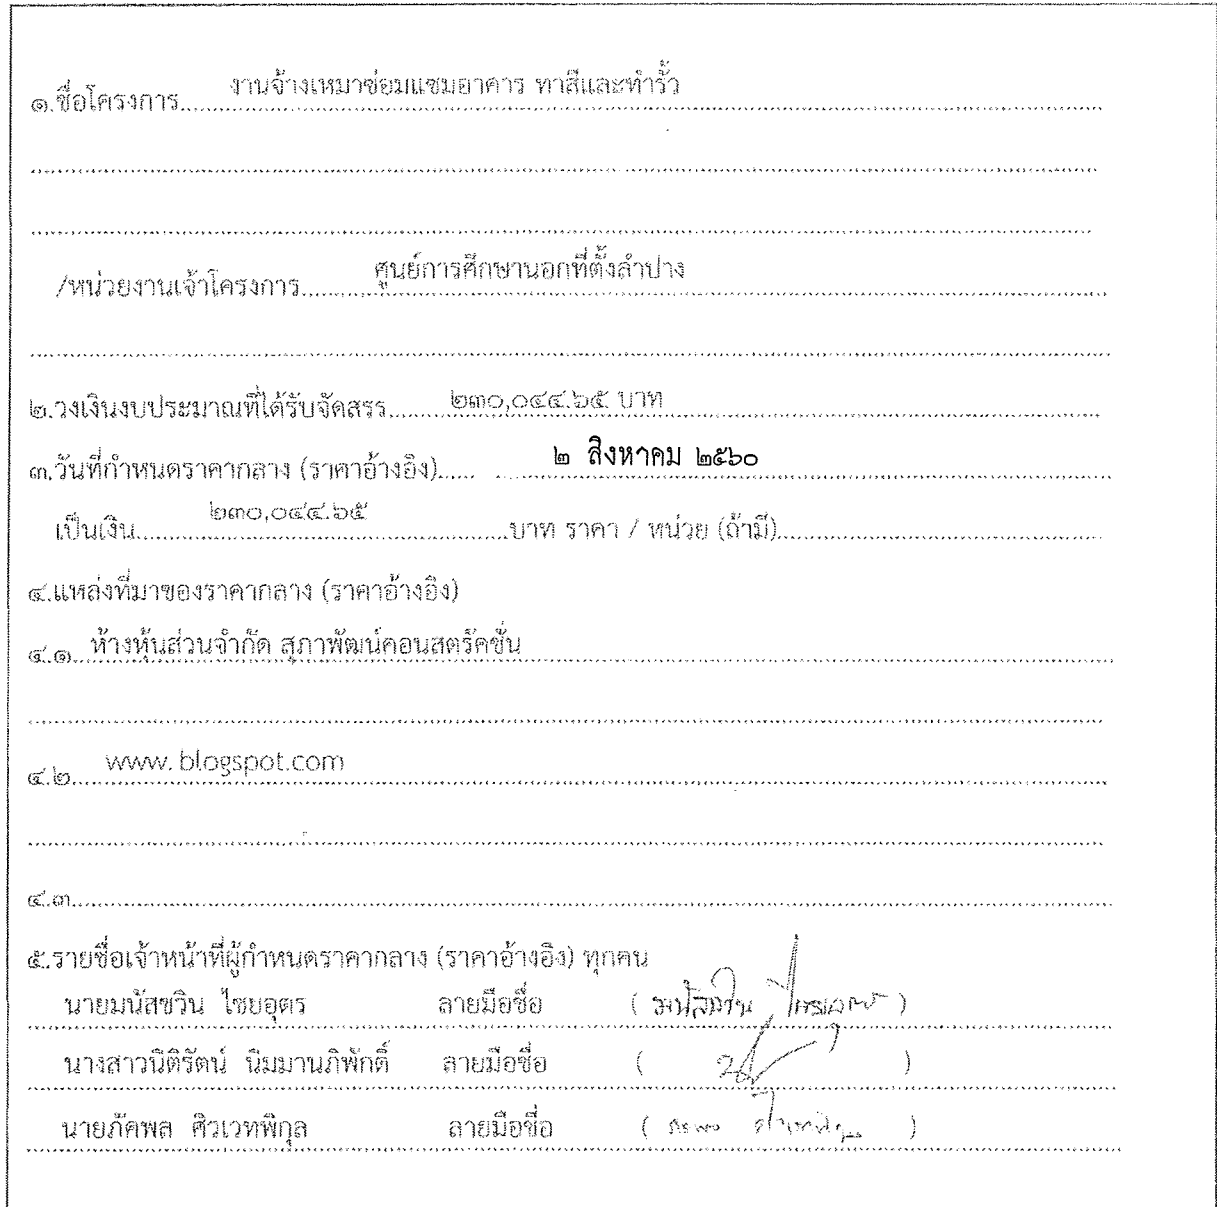 ๑.ชื่อโครงการ......งานจ้างเหมาซ่อมแซมอาคาร ทาสีและทำรั้ว
/หน่วยงานเจ้าโครงการ............ศูนย์การศึกษานอกที่ตั้งลำปาง
๒.วงเงินงบประมาณที่ได้รับจัดสรร........๒๓๐,๐๔๔.๖๕ บาท
๓.วันที่กำหนดราคากลาง (ราคาอ้างอิง)...... ๒ สิงหาคม ๒๕๖๐
เป็นเงิน..........๒๓๐,๐๔๔.๖๕..........บาท ราคา / หน่วย (ถ้ามี)..........
๔.แหล่งที่มาของราคากลาง (ราคาอ้างอิง)
๔.๑ ห้างหุ้นส่วนจำกัด สุภาพัฒน์คอนสตรัคชั่น
๔.๒.... www.blogspot.com
๔.๓..........
๕.รายชื่อเจ้าหน้าที่ผู้กำหนดราคากลาง (ราคาอ้างอิง) ทุกคน
นายมนัสชวิน ไชยอุตร ลายมือชื่อ ( )
นางสาวนิติรัตน์ นิมมานภิพักดิ์ ลายมือชื่อ ( )
นายภัคพล ศิวเวทพิกุล ลายมือชื่อ ( )